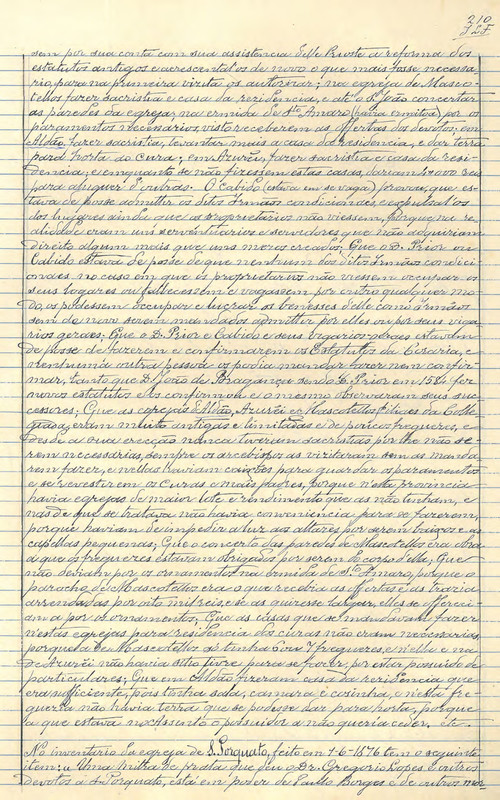 210
sem por sua conta com sua assistencia d'elle Revdo a reforma dos
estatutos antigos e acrescental-os de novo e que mais fosse necessa-
rio, para na primeira visita os autorisar; na egreja de Masco-
tellos fazer sacristia e casa da residencia, e até o S. João concertar
as paredes da egreja, na ermida de Sto Amaro (havia ermitão) pôr os
paramentos necessarios, visto receberem as offertas dos devotos; em
Aldão, fazer sacristia, levantar mais a casa da residencia, e dar terra
para horta ao cura; em Azurei, fazer sacristia e casa da resi-
dencia; e emquanto se não fizessem estas casas, dariam
para aluguer d'outras. O Cabido (estava em se vaga) provou, que es-
tava de posse admittir os ditos Irmãos condicionaes, e expulsal-os
dos lugares ainda que os proprietarios não viessem, porque na re-
alidade eram uns serventuarios e servidores que não adquiriam
direito algum mais que uns meros creados; Que o D. Prior ou
Cabido estava de posse de que nenhum dos ditos Irmãos condici-
onaes, no caso em que os proprietarios não viessem occupar os
seus logares ou fallecessem e vagassem por outro qualquer mo-
do, os podessem occupar e lucrar os benesses d'elle como irmãos
sem de novo serem mandados admittir por elles ou por seus viga-
rios geraes; Que o D. Prior e Cabido e seus vigarios geraes estavam
de posse de fazerem e confirmarem os Estatutos da
e nenhuma outra pessoa os podia mandar fazer nem confir-
mar, tanto que D. João de Bragança sendo D. Prior em 15 fez
novos estatutos e os confirmou e o mesmo observaram seus suc-
cessores; Que as egrejas d'Aldão, Azurei e Mascotellos filiaes da Colle-
giada, eram muito antigas e limitadas e de poucos freguezes, e
desde a sua erecção nunca tiveram sacristias por lhe não se-
rem necessarias, sempre os arcebispos as visitaram sem as manda-
rem fazer, e n'ellas haviam caixões para guardar os paramentos
e se revestirem os curas e mais padres, porque n'esta provincia
havia egrejas de maior lote e rendimento que as não tinham, e
nas de que se tratava não havia conveniencia para se fazerem,
porque haviam de impedir a luz aos altares por serem baixos e as
capellas pequenas; Que o concerto das paredes de Mascotellos era obra
a que os freguezes estavam obrigados por serem do corpo d'ella; Que
não deviam pôr os ornamentos na ermida de Sto Amaro, porque o
parocho de Mascotellos era o que recebia as offertas e as trazia
arrendadas por oito mil reis, e se as quizesse largar, elles se offereci-
am a pôr os ornamentos; Que as casas que se mandavam fazer
n'estas egrejas para residencia dos curas não eram necessarias,
porque a de Mascotellos só tinha 6 ou 7 freguezes, e n'ella e na
de Azurei não havia sitio livre para se fazer, por estar possuido de
particulares; Que em Aldão fizeram casa da residencia que
era sufficiente, pois tinha sala, camara e cosinha, e n'esta fre-
guezia não havia terra que se podesse dar para horta, porque
a que estava no assento o possuidor a não queria ceder. etc.
No inventario da egreja de S. Torquato, feito em 1-6-1876 tem o seguinte
item: Uma mitra de prata que deu o Dr. Gregorio Lopes e outros
devotos a S. Torquato, está em poder de Paulo Borges e de outros mor-